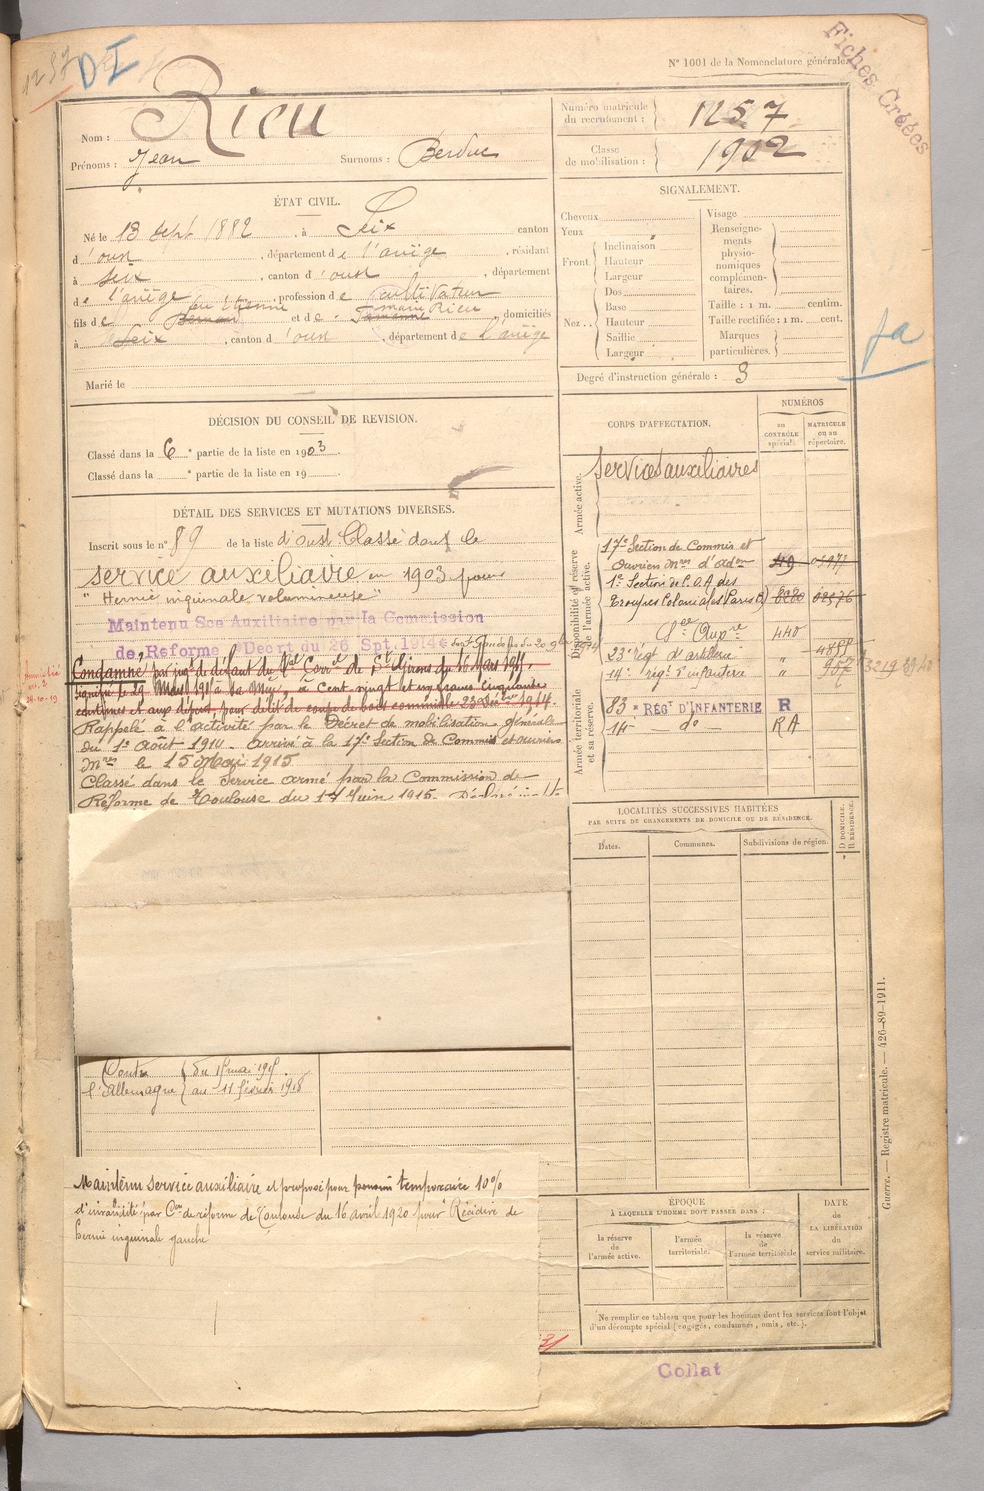 1257 DI
Fiches Créées
N° 1001 de la Nomenclature générale.
Nom : Rieu
Prénoms : Jean Surnoms : Berduc
Numéro matricule du recrutement : 1257
Classe de mobilisation : 1902
ÉTAT CIVIL.
Né le 13 sept 1882, à Seix canton
d'oust, département de l'ariège, résidant
à seix, canton d'oust, département
de l'ariège profession de cultivateur
fils de feu Etienne et de marie Rieu, domiciliés
à Seix, canton d'oust, département de l'ariège
Marié le
SIGNALEMENT.
Cheveux
Yeux
Front. Inclinaison
Hauteur
Largeur
Nez.. Dos
Base
Hauteur
Saillie
Largeur
Visage
Renseigne-
ments
physio-
nomiques
complémen-
taires.
Taille : 1 m. centim.
Taille rectifiée : 1 m. cent.
Marques
particulières.
Degré d'instruction générale : 3
DÉCISION DU CONSEIL DE REVISION.
Classé dans la 6e partie de la liste en 1903
Classé dans la e partie de la liste en 19
DÉTAIL DES SERVICES ET MUTATIONS DIVERSES.
Inscrit sous le n° 89 de la liste d'oust Classé dans le
service auxiliaire en 1903 pour
"Hernie inguinale volumineuse"
Maintenu Sce Auxiliaire par la Commission
de Reforme (Décret du 26 Spt. 1914)
Condamné par jugt de défaut du Val Correl de St Girons du 16 Mars 1911,
signifié le 29 Mars 1911 à sa Mère, à Cent vingt et un francs cinquante
centimes et aux dépens, pour délit de coupe de bois
Rappelé à l'activité par le Décret de mobilisation générale
du 1er août 1914. Arrivé à la 17e Section de Commis et ouvriers
mres le 15 Mai 1915.
Classé dans le Service armé par la Commission de
Réforme de Toulouse du 17 Juin 1915.
Contre l'Allemagne du 15 mai 1915.
au 11 février 1918
Maintenu service auxiliaire et proposé pour pension temporaire 10%
d'invalidité par Con de réforme de Toulouse du 16 avril 1920 pour Récidive de
hernie inguinale gauche
CORPS D'AFFECTATION.
NUMÉROS
au CONTRÔLE spécial.
MATRICULE ou au répertoire.
Armée active.
Services auxiliaires
Disponibilité et réserve de l'armée active.
17e Section de Commis et
Ouvriers Mres d'adon
1e Section de C.O.A. des
Troupes Coloniales Paris
440
23e régt d'artillerie
14e régt d'infanterie
Armée territoriale et sa réserve.
83e RÉGt D'INFANTERIE R
14 — do — RA
LOCALITÉS SUCCESSIVES HABITÉES
PAR SUITE DE CHANGEMENTS DE DOMICILE OU DE RÉSIDENCE.
Dates.
Communes.
Subdivisions de région.
D DOMICILE.
R RÉSIDENCE.
ÉPOQUE
À LAQUELLE L'HOMME DOIT PASSER DANS :
la réserve de l'armée active.
l'armée territoriale.
la réserve de l'armée territoriale
DATE de LA LIBÉRATION du service militaire.
Ne remplir ce tableau que pour les hommes dont les services font l'objet
d'un décompte spécial (engagés, condamnés, omis, etc.).
Guerre. — Registre matricule. — 426-89-1911.
Collat